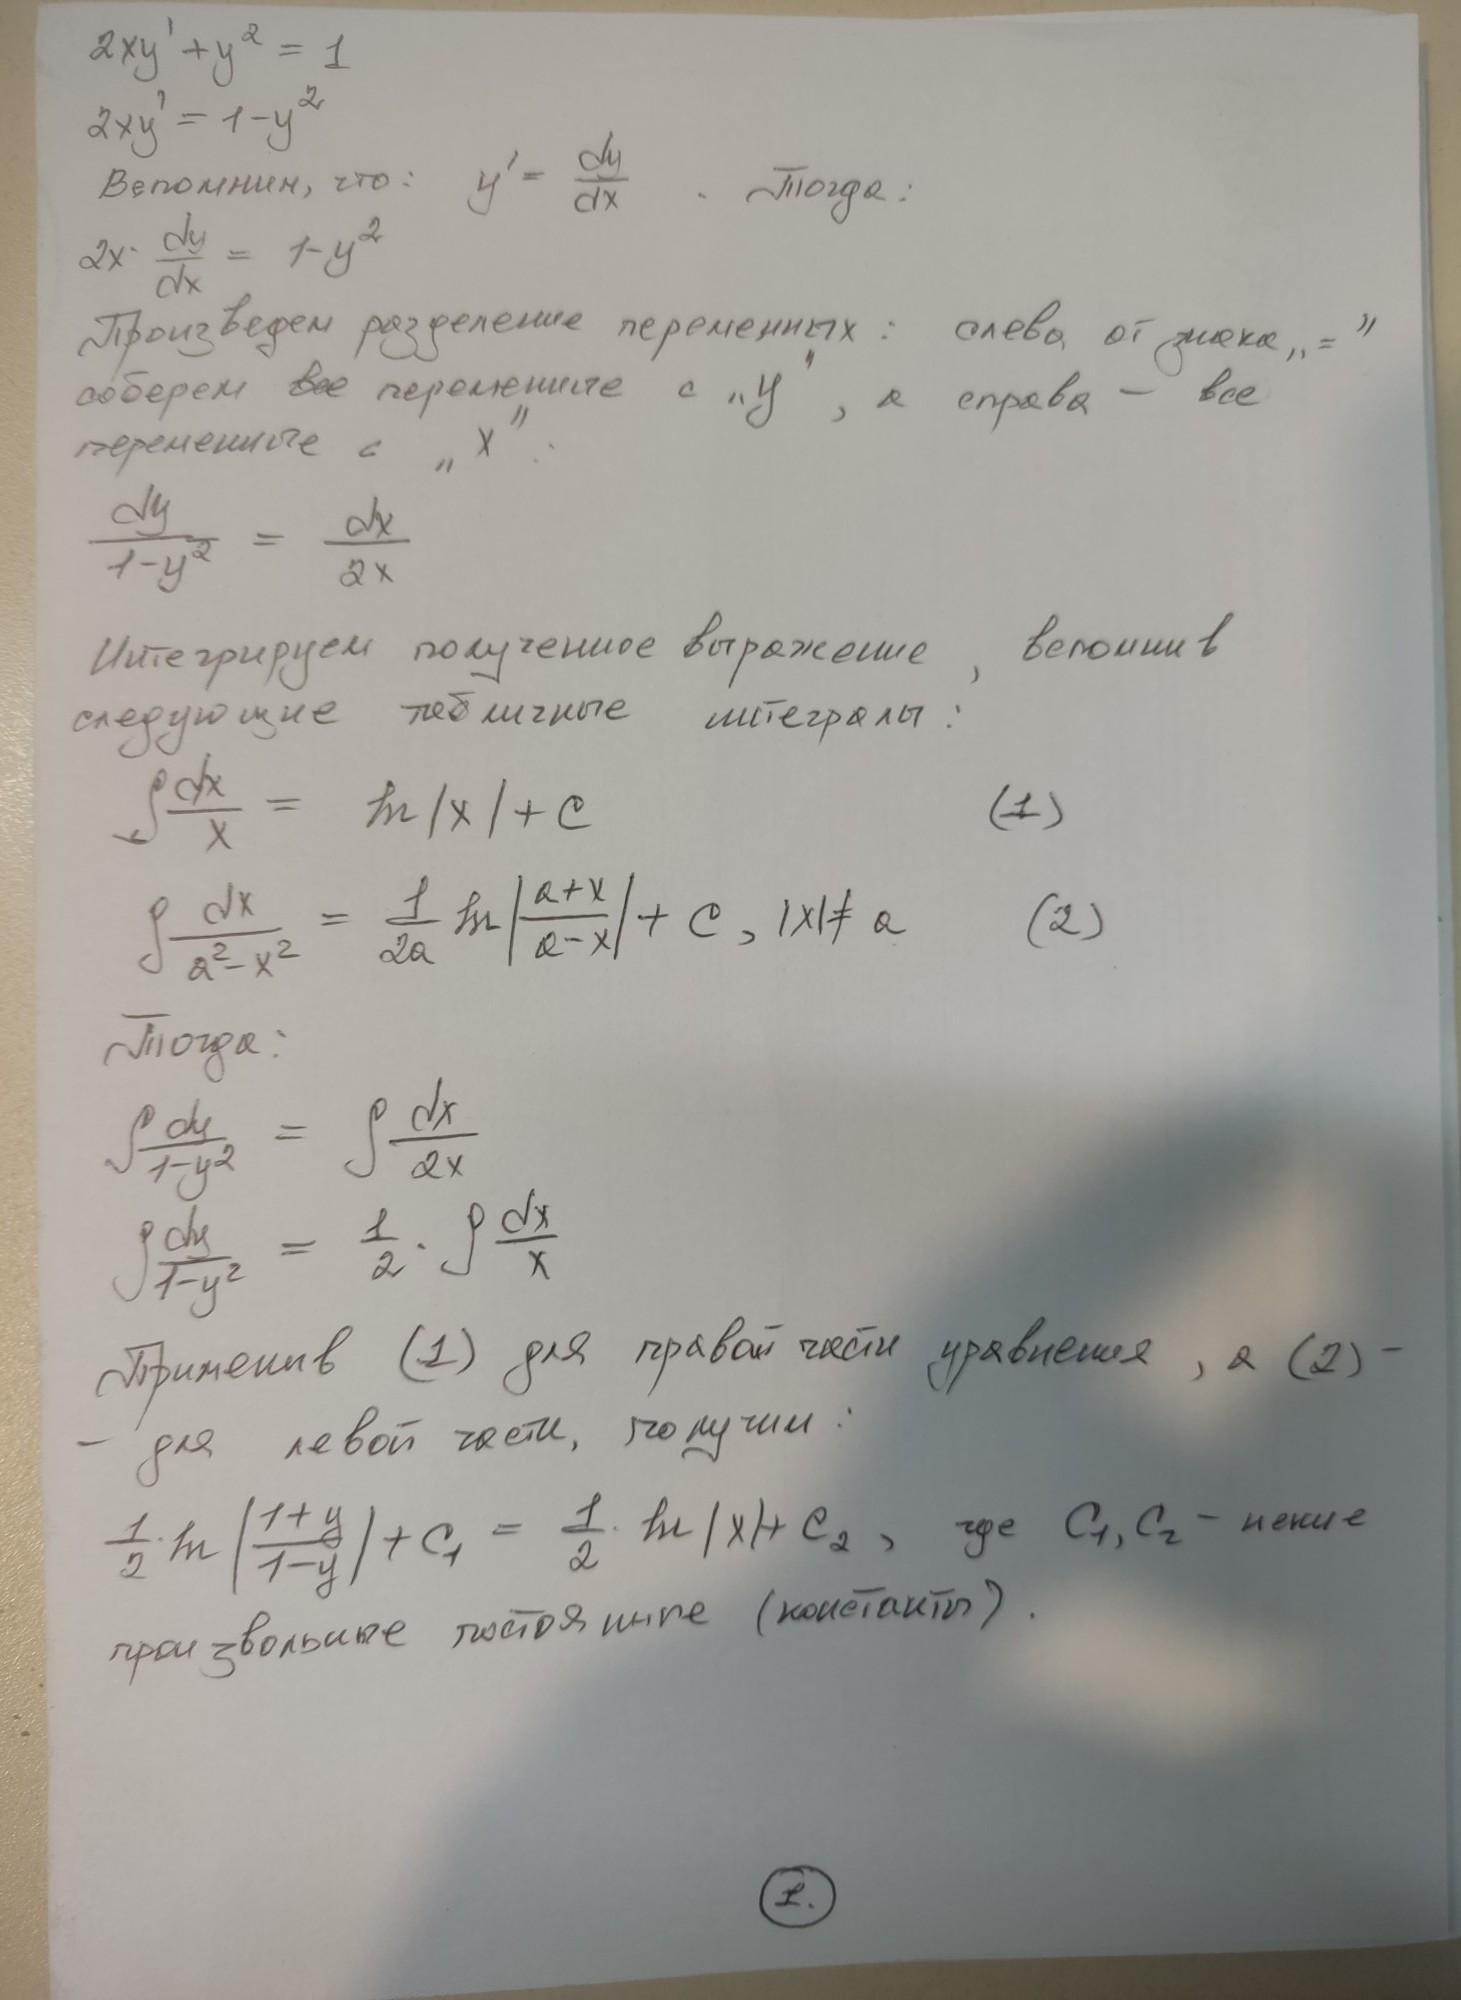 2xy' + y² = 1
2xy' = 1-y²
Вспомним, что: y' = dy/dx . Тогда:
2x· dy/dx = 1-y²
Произведем разделение переменных: слева от знака „="
соберем все переменные с „y", а справа – все
переменные с „x":
dy/(1-y²) = dx/2x
Интегрируем полученное выражение, вспомнив
следующие табличные интегралы:
∫ dx/x = ln|x| + C (1)
∫ dx/(a²-x²) = 1/2a ln|(a+x)/(a-x)| + C, |x| ≠ a (2)
Тогда:
∫ dy/(1-y²) = ∫ dx/2x
∫ dy/(1-y²) = 1/2 · ∫ dx/x
Применив (1) для правой части уравнения, а (2) –
– для левой части, получим:
1/2 · ln|(1+y)/(1-y)| + C₁ = 1/2 · ln|x| + C₂, где C₁, C₂ – некие
произвольные постоянные (константы).
1.